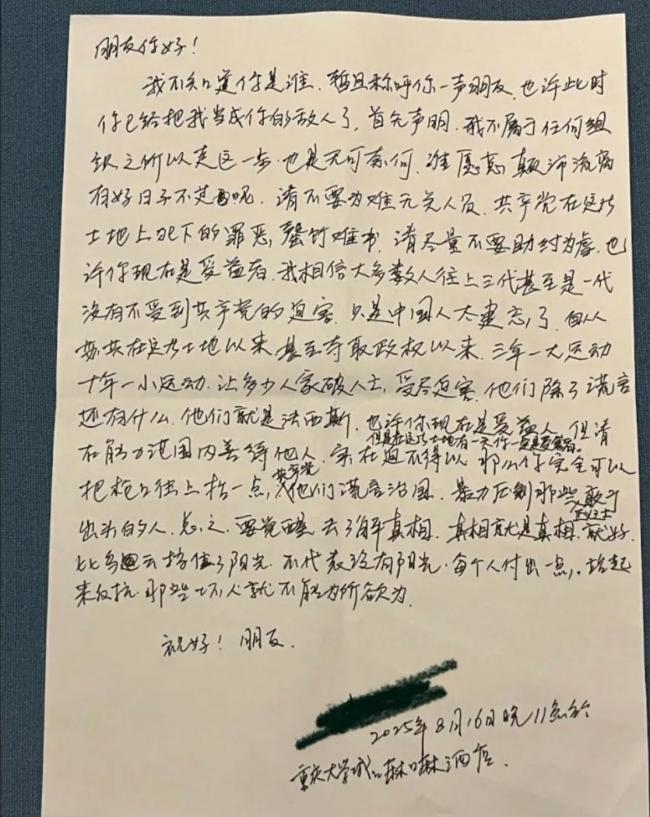 朋友你好！
我不知道你是谁．暂且称呼你一声朋友，也许此时
你已给把我当成你的敌人了，首先声明．我不属于任何组
织之所以走这一步．也是无可奈何．谁愿意颠沛流离
有好日子不过呢．请不要为难无关人员．共产党在这片
土地上犯下的罪恶，罄竹难书．请尽量不要助纣为虐．也
许你现在是受益者．我相信大多数人往上三代甚至是一代
没有不受到共产党的迫害．只是中国人太健忘了，自从
苏共在这片土地以来．甚至夺取政权以来．三年一大运动
十年一小运动．让多少人家破人亡，受尽迫害．他们除了谎言
还有什么．他们就是法西斯．也许你现在是受益人．但请
但是在这片土地有一天你一定是受害者．
在能力范围内善待他人．实在迫不得以．那么你完全可以
共产党
把枪口往上抬一点，他们谎言治国．暴力压制那些敢于
正义之士
出头的人．总之．要觉醒．去了解真相．真相就是真相．就好
比乌云挡住了阳光．不代表没有阳光．每个人付出一点，站起
来反抗．那些坏人就不能为所欲为．
祝好！朋友．
2025年8月16日晚11点于
重庆大学城
酒店．